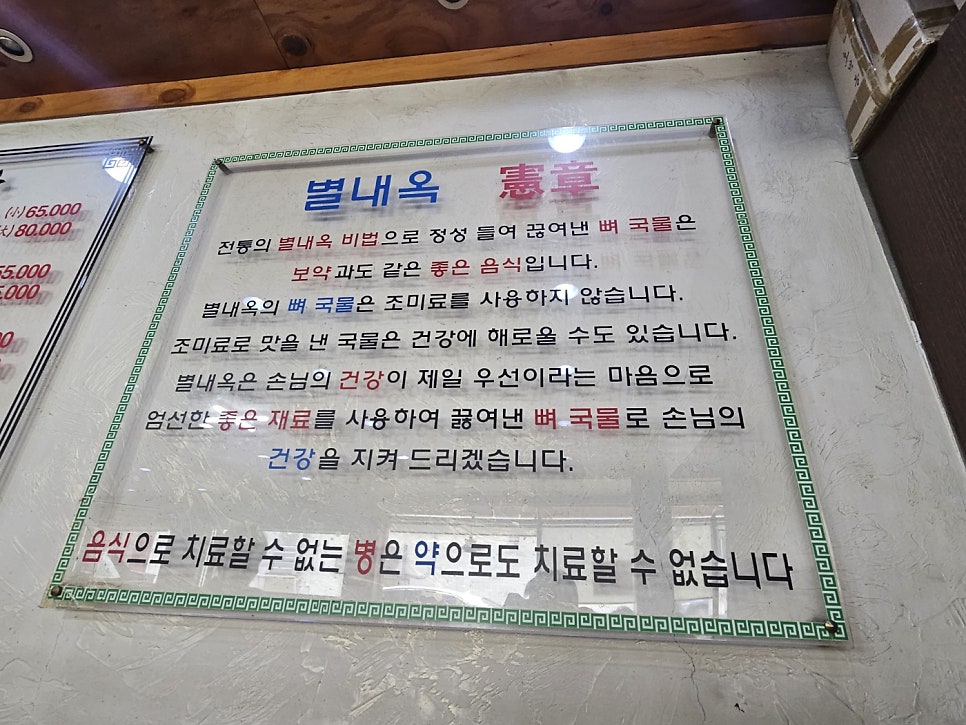 (小) 65,000
80,000
55,000
5,000
별내옥 憲章
전통의 별내옥 비법으로 정성 들여 끊여낸 뼈 국물은
보약과도 같은 좋은 음식입니다.
별내옥의 뼈 국물은 조미료를 사용하지 않습니다.
조미료로 맛을 낸 국물은 건강에 해로울 수도 있습니다.
별내옥은 손님의 건강이 제일 우선이라는 마음으로
엄선한 좋은 재료를 사용하여 끓여낸 뼈 국물로 손님의
건강을 지켜 드리겠습니다.
음식으로 치료할 수 없는 병은 약으로도 치료할 수 없습니다